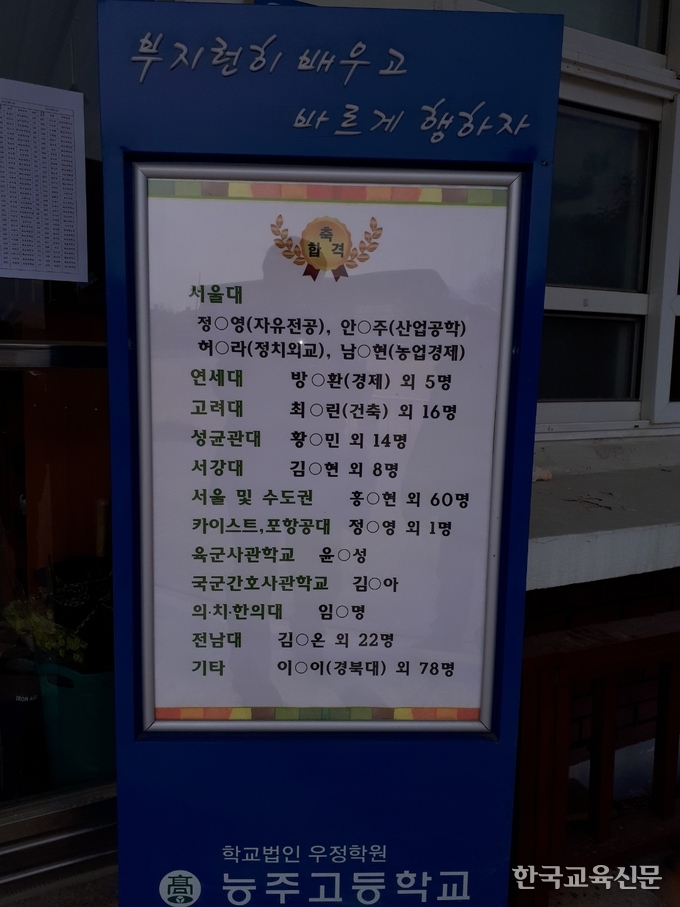 부지런히 배우고
바르게 행하자
축
합 격
서울대
정○영(자유전공), 안○주(산업공학)
허○라(정치외교), 남○현(농업경제)
연세대 방○환(경제) 외 5명
고려대 최○린(건축) 외 16명
성균관대 황○민 외 14명
서강대 김○현 외 8명
서울 및 수도권 홍○현 외 60명
카이스트,포항공대 정○영 외 1명
육군사관학교 윤○성
국군간호사관학교 김○아
의·치·한의대 임○명
전남대 김○온 외 22명
기타 이○이(경북대) 외 78명
학교법인 우정학원
高 능주고등학교
한국교육신문